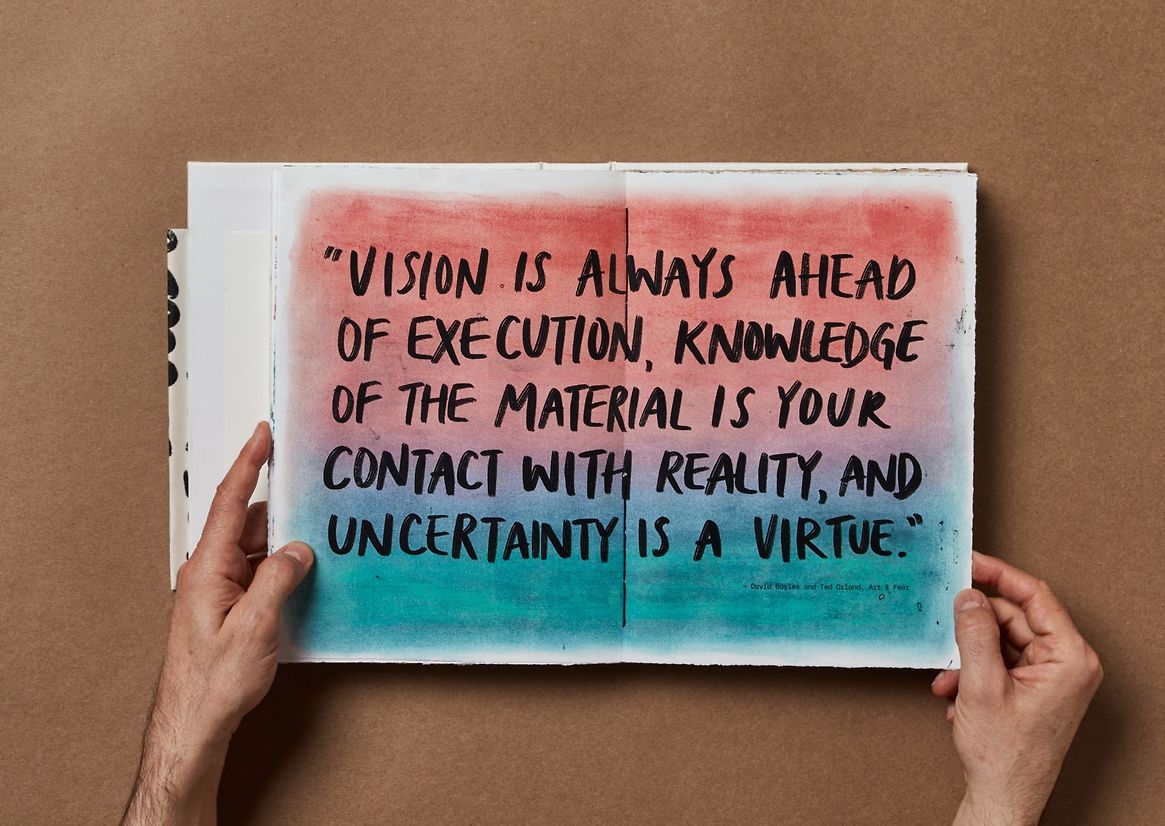 "VISION IS ALWAYS AHEAD
OF EXECUTION, KNOWLEDGE
OF THE MATERIAL IS YOUR
CONTACT WITH REALITY, AND
UNCERTAINTY IS A VIRTUE."
- David Bayles and Ted Orland, Art & Fear